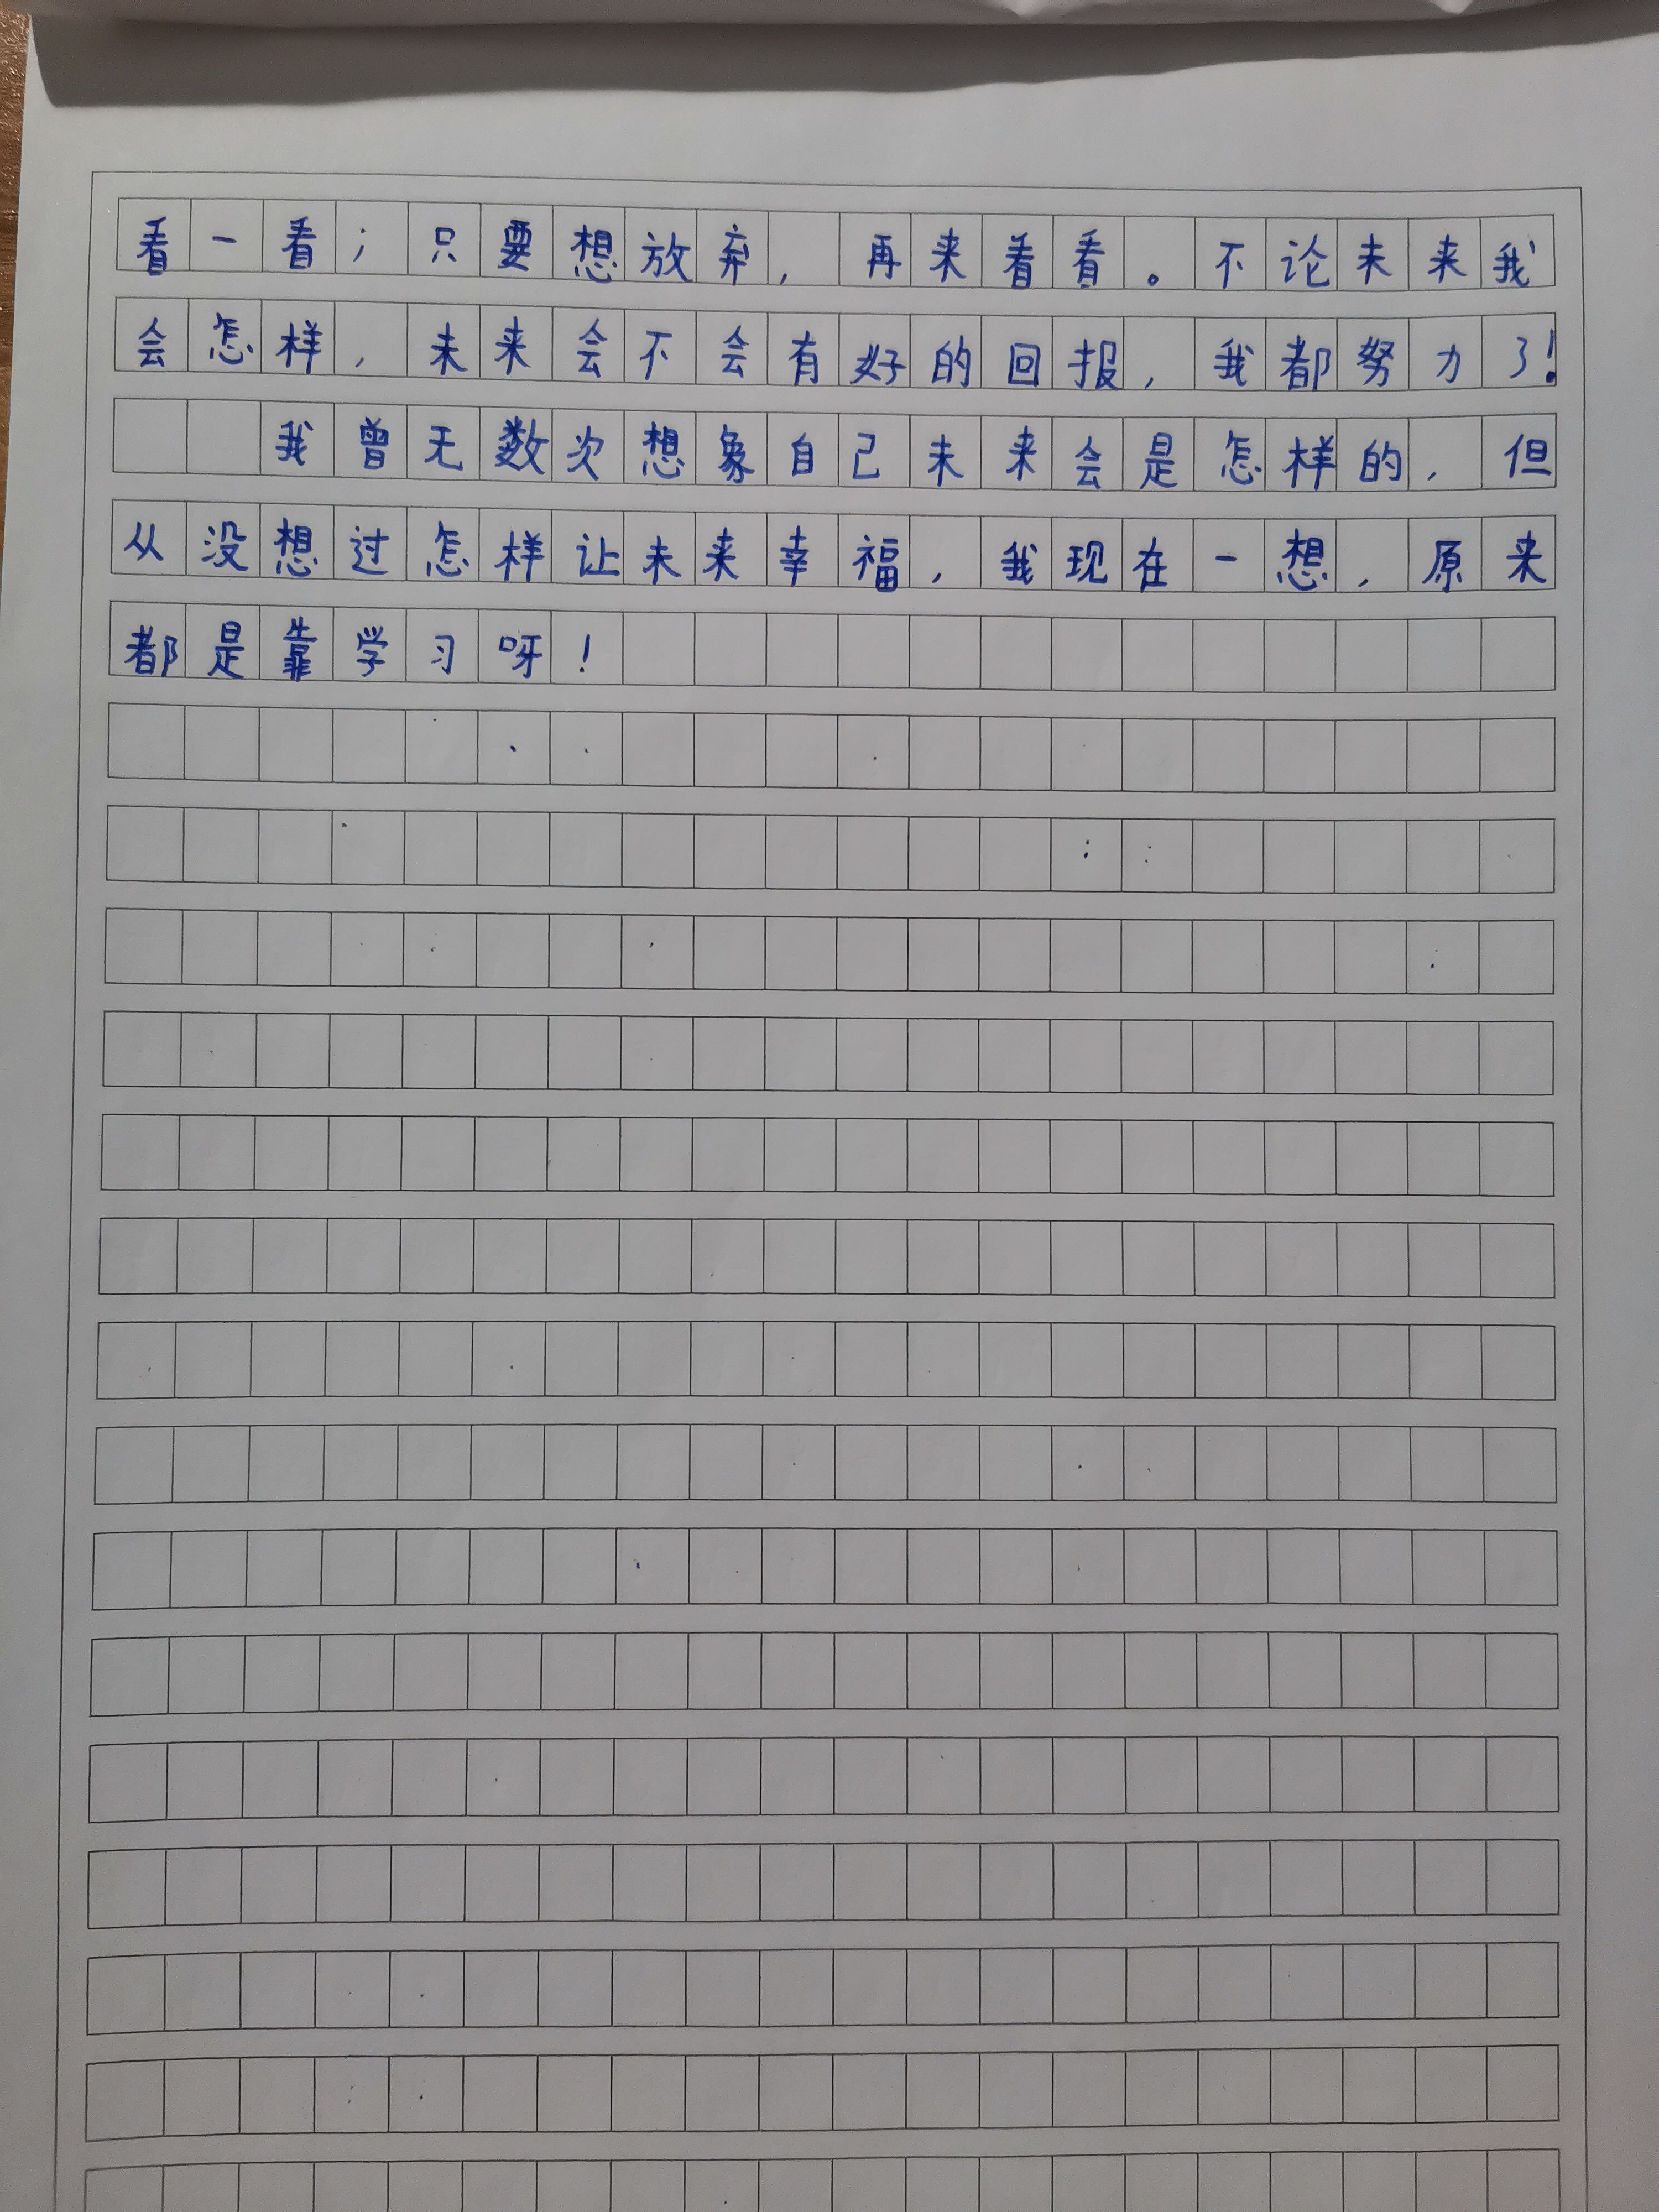 看一看；只要想放弃，再来看看。不论未来我
会怎样，未来会不会有好的回报，我都努力了！
我曾无数次想象自己未来会是怎样的，但
从没想过怎样让未来幸福，我现在一想，原来
都是靠学习呀！